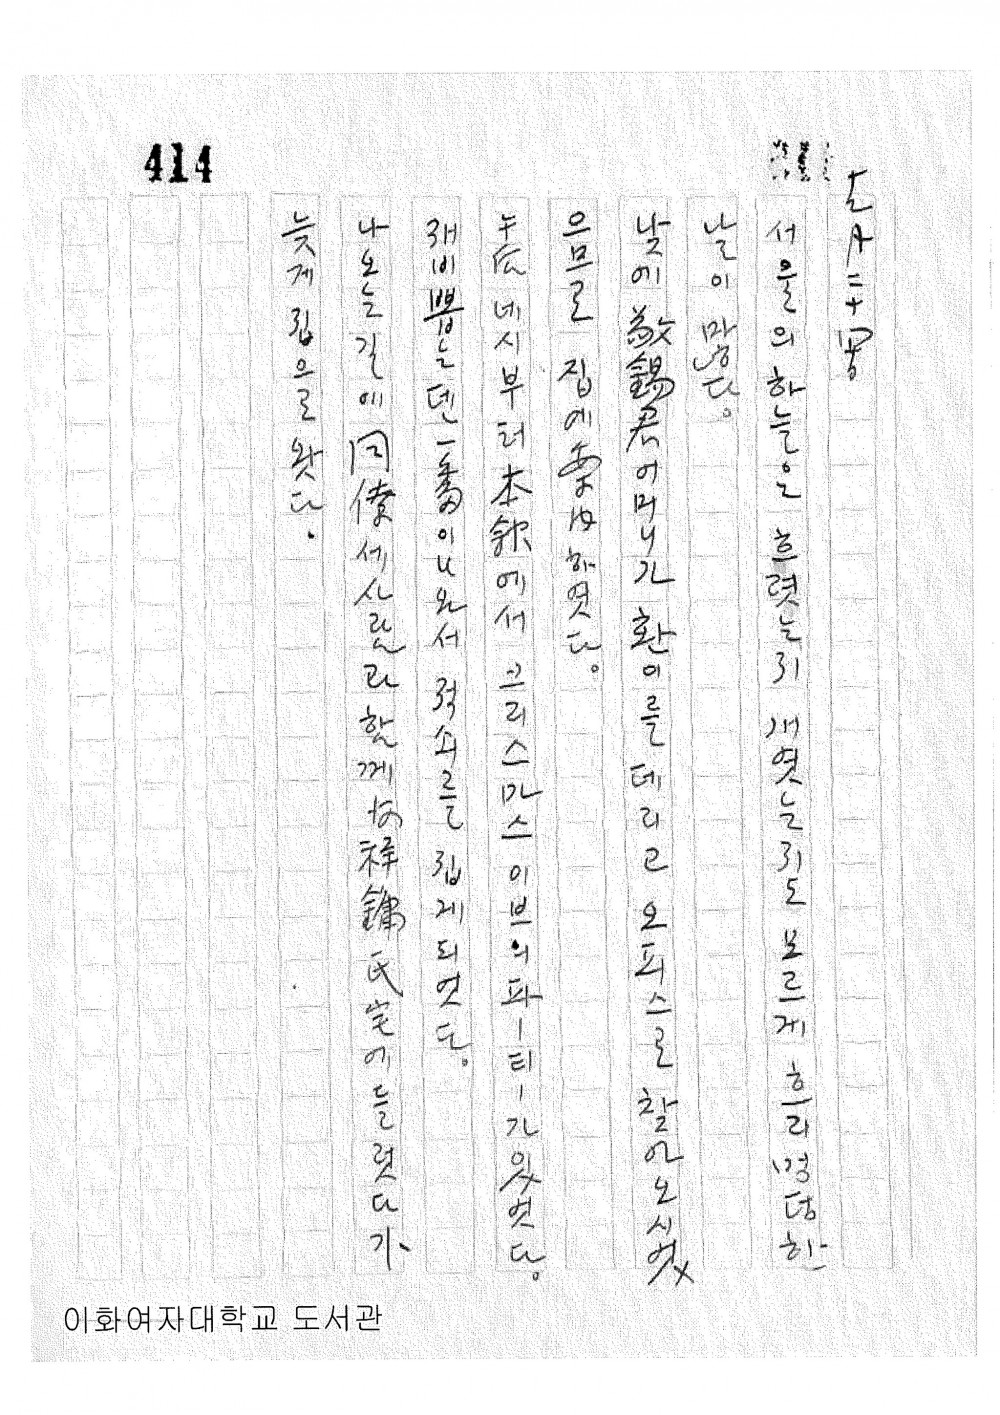 414
서울의 하늘은 흐렷는지 개엿는지도 모르게 흐리멍덩한
날이 많다.
낮에 敬錫君 어머니가 환이를 데리고 오피스로 찾아오시엿
으므로 집에 案內하엿다.
午后 네시부터 本館에서 크리스마스 이브의 파ー티ー가 잇엇다.
재비뽑는덴 一番이 나와서 적쇠를 집게 되엿다.
나오는 길에 同僚 세 사람과 함께 氏宅에 들럿다가
늦게 집으로 왓다.
이화여자대학교 도서관